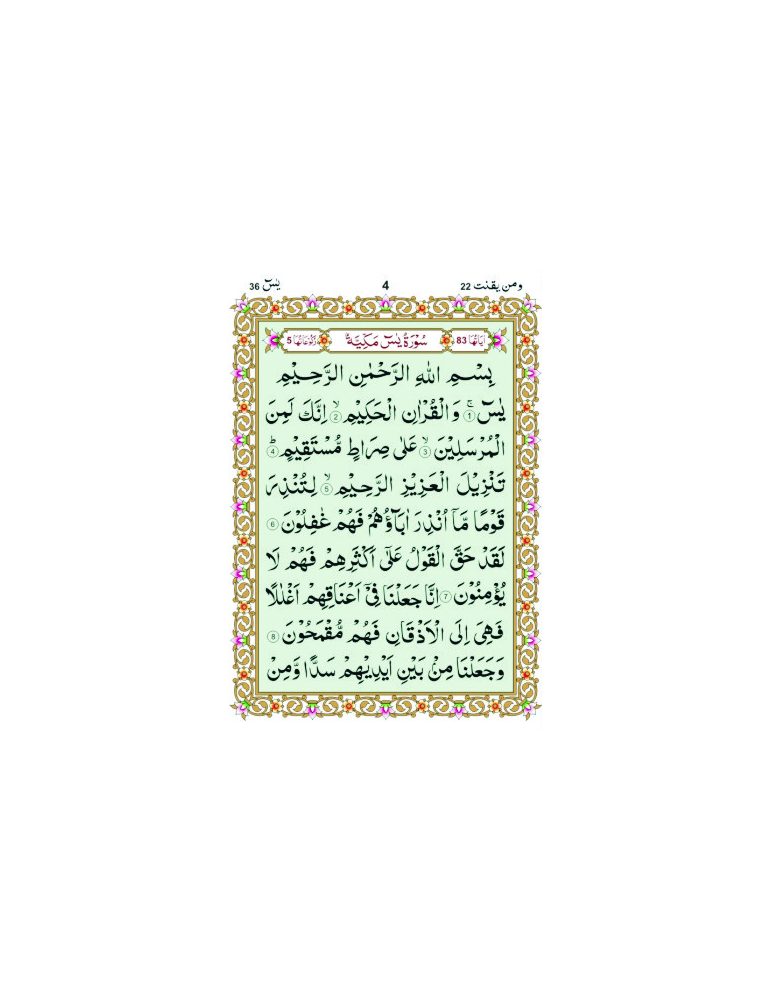 ومن یقنت 22 4 یٰسٓ 36
اٰیَاتُهَا 83 سُوْرَةُ یٰسٓ مَكِّیَّةٌ رُكُوْعَاتُهَا 5
بِسْمِ اللّٰهِ الرَّحْمٰنِ الرَّحِیْمِ
یٰسٓ ۚ ١ وَ الْقُرْاٰنِ الْحَكِیْمِ ۙ ٢ اِنَّكَ لَمِنَ
الْمُرْسَلِیْنَ ۙ ٣ عَلٰی صِرَاطٍ مُّسْتَقِیْمٍ ؕ ٤
تَنْزِیْلَ الْعَزِیْزِ الرَّحِیْمِ ۙ ٥ لِتُنْذِرَ
قَوْمًا مَّاۤ اُنْذِرَ اٰبَآؤُهُمْ فَهُمْ غٰفِلُوْنَ ٦
لَقَدْ حَقَّ الْقَوْلُ عَلٰۤی اَكْثَرِهِمْ فَهُمْ لَا
یُؤْمِنُوْنَ ٧ اِنَّا جَعَلْنَا فِیْۤ اَعْنَاقِهِمْ اَغْلٰلًا
فَهِیَ اِلَی الْاَذْقَانِ فَهُمْ مُّقْمَحُوْنَ ٨
وَجَعَلْنَا مِنْۢ بَیْنِ اَیْدِیْهِمْ سَدًّا وَّمِنْ